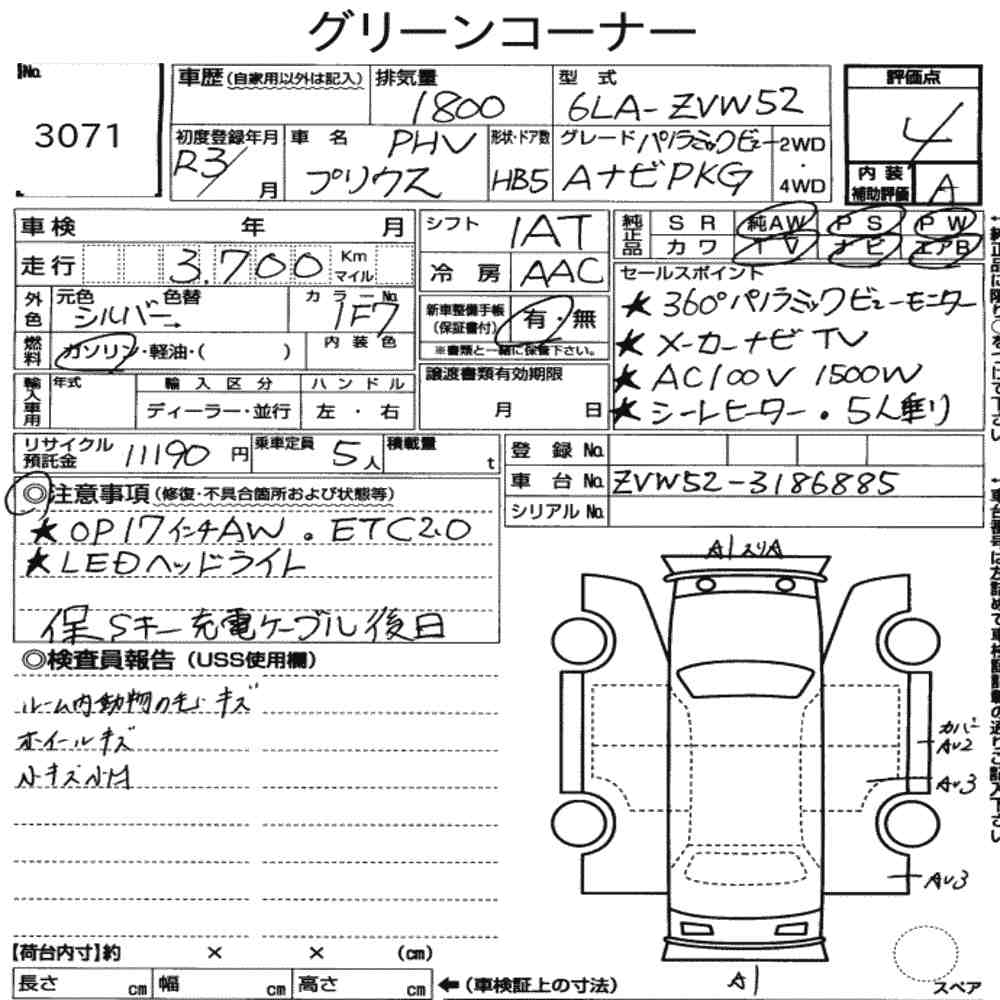 グリーンコーナー
No.
3071
車歴 (自家用以外は記入)
排気量
1800
型式
6LA-ZVW52
評価点
4
初度登録年月
R3/ 月
車名
PHV
プリウス
形状・ドア数
HB5
グレード パノラミックビュー
AナビPKG
2WD
・
4WD
内装
補助評価
A
車検 年 月
走行 3.700 Km
マイル
外色
元色 色替
シルバー→
カラーNo.
1F7
燃料
ガソリン・軽油・( )
内装色
輸入車用
年式
輸入区分
ディーラー・並行
ハンドル
左・右
シフト
1AT
冷房
AAC
新車整備手帳
(保証書付)
有・無
※書類と一緒に保管下さい。
譲渡書類有効期限
月 日
純正品
SR 純AW PS PW
カワ TV ナビ エアB
セールスポイント
★360°パノラミックビューモニター
★メーカーナビTV
★AC100V 1500W
★シートヒーター・5人乗り
リサイクル
預託金
11190円
乗車定員
5人
積載量
t
登録No.
車台No. ZVW52-3186885
シリアルNo.
◎注意事項 (修復・不具合箇所および状態等)
★OP17インチAW。ETC2.0
★LEDヘッドライト
保Sキー充電ケーブル後日
◎検査員報告 (USS使用欄)
ルーム内動物の毛、キズ
ホイールキズ
小キズ小凹
A1スリA
カバー
AU2
AU3
AU3
A1
スペア
【荷台内寸】約 × × (cm)
長さ cm 幅 cm 高さ cm
←(車検証上の寸法)